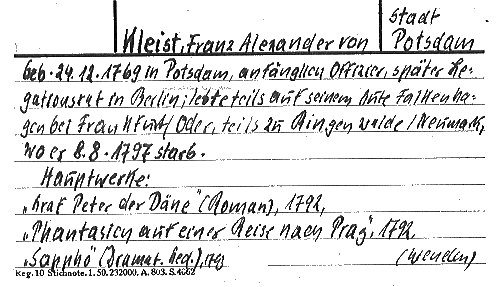 Kleist, Franz Alexander von
Stadt
Potsdam
geb. 24.12.1769 in Potsdam, anfänglich Offizier, später Le-
gationsrat in Berlin; lebte teils auf seinem Gute Falkenha-
gen bei Frankfurt/Oder, teils zu Ringenwalde/Neumark,
wo er 8.8.1797 starb.
Hauptwerke:
„Graf Peter der Däne" (Roman), 1792,
„Phantasien auf einer Reise nach Prag", 1792,
„Sappho" (Dramat. Ged.), 1793
(Wenden)
Keg. 10 Stichnote. 1. 50. 232000. A. 803. S. 4662